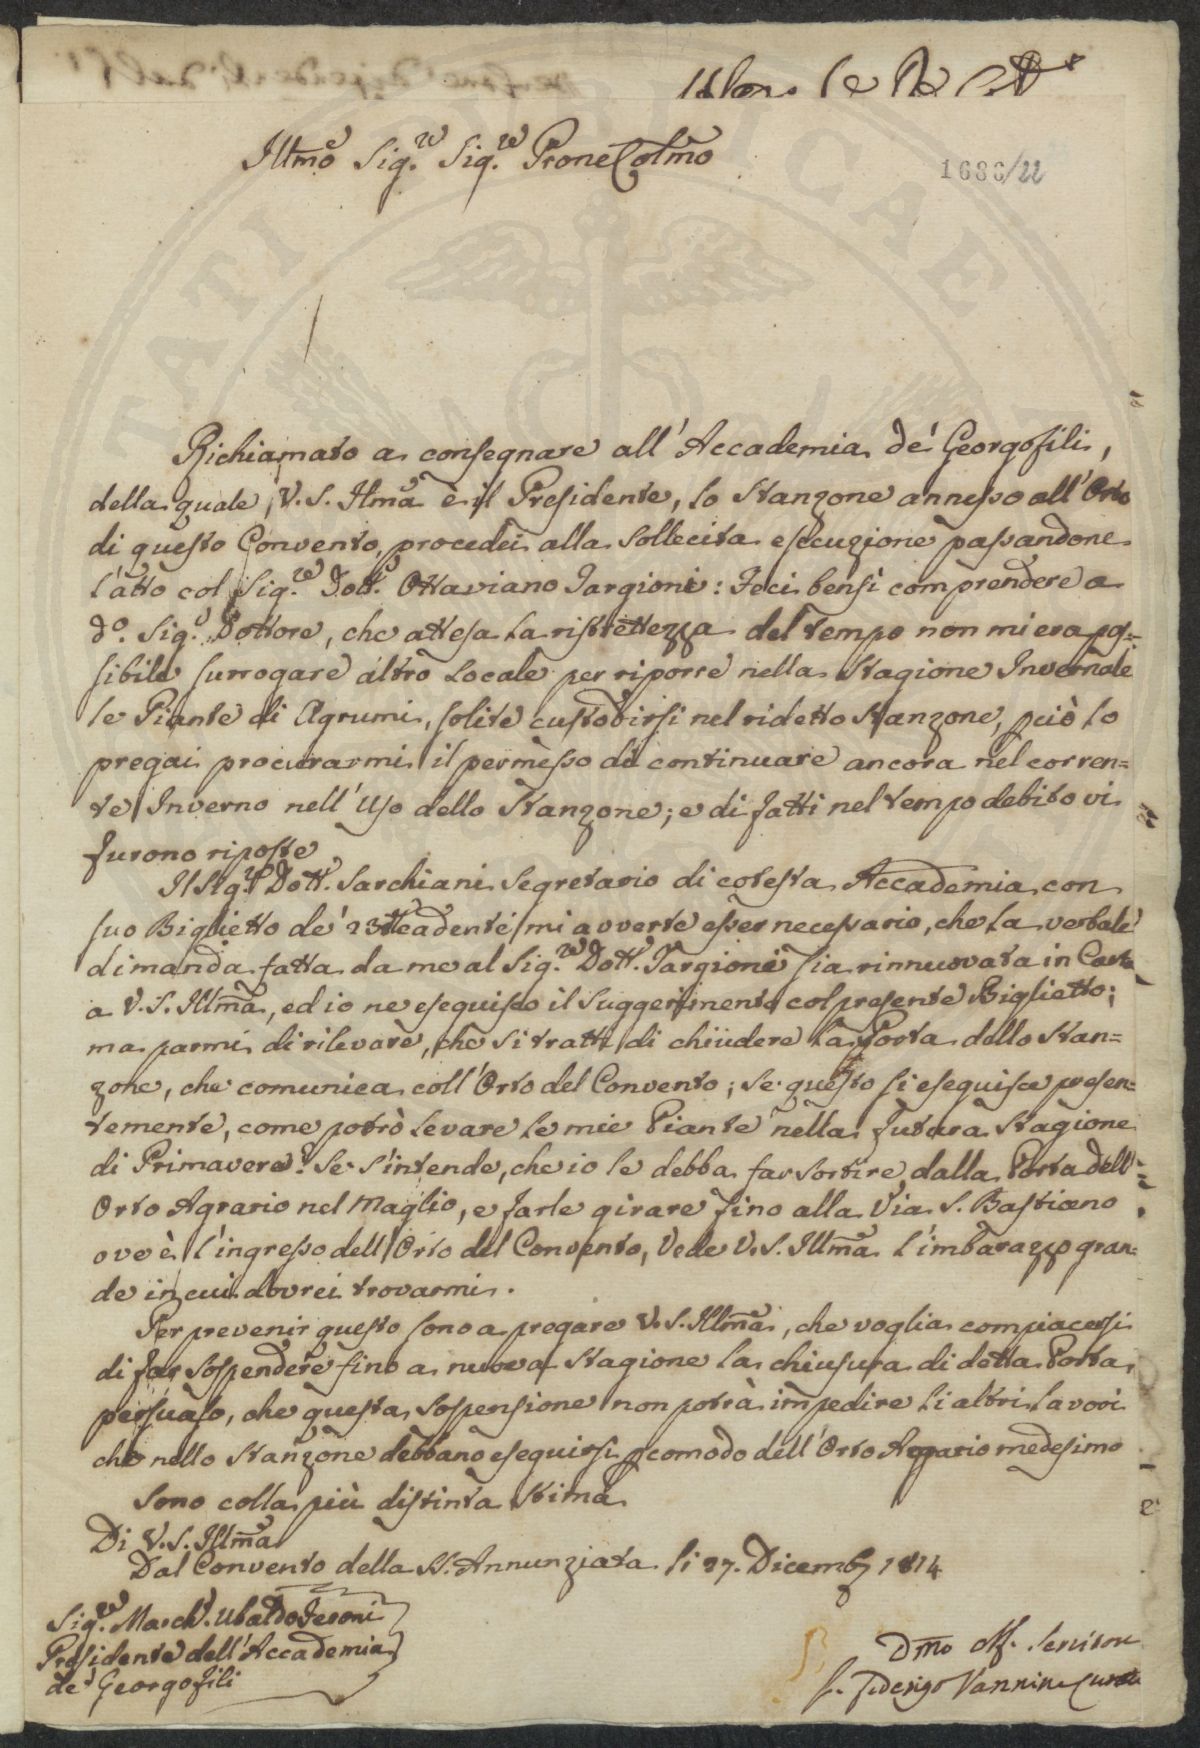 Illmo Sig.re Sig.re Prone Colmo
1686/22
Richiamato a consegnare all'Accademia de' Georgofili,
della quale V. S. Illma è il Presidente, lo Stanzone annesso all'Orto
di questo Convento, procedei alla sollecita esecuzione passandone
l'atto col Sig.re Dott. Ottaviano Targioni: Feci bensì comprendere a
do. Sig.r Dottore, che attesa la ristrettezza del tempo non mi era pos=
sibile surrogare altro locale per riporre nella Stagione Invernale
le Piante di Agrumi, solite custodirsi nel ridetto Stanzone, più lo
pregai procurarmi il permesso di continuare ancora nel corren=
te Inverno nell'Uso dello Stanzone; e di fatti nel tempo debito vi
furono riposte
Il Sig.r Dott. Sarchiani Segretario di cotesta Accademia con
suo Biglietto de' 23 cadente mi avverte esser necessario, che la verbale
dimanda fatta da me al Sig.re Dott. Targioni sia rinnuovata in Carta
a V. S. Illma, ed io ne eseguisco il suggerimento col presente Biglietto;
ma parmi di rilevare, che si tratti di chiudere la Porta dello Stan=
zone, che comunica coll'Orto del Convento; se questo si eseguisce presen=
temente, come potrò levare le mie Piante nella futura Stagione
di Primavera? Se s'intende, che io le debba far sortire dalla Porta dell'
Orto Agrario nel Maglio, e farle girare fino alla Via S. Bastiano
ove è l'ingresso dell'Orto del Convento, Vede V. S. Illma l'imbarazzo gran=
de in cui dovrei trovarmi.
Per prevenir questo sono a pregare V. S. Illma, che voglia compiacersi
di far sospendere fino a nuova Stagione la chiusura di detta Porta,
persuaso, che questa sospensione non potrà impedire li altri lavori
che nello Stanzone debbano eseguirsi p comodo dell'Orto Agrario medesimo
Sono colla più distinta stima
Di V. S. Illma
Dal Convento della SS. Annunziata li 27. Dicemb. 1814
Sig.re March. Ubaldo Feroni
Presidente dell'Accademia
de' Georgofili
Dmo Servitore
F. Federigo Vannini Curato